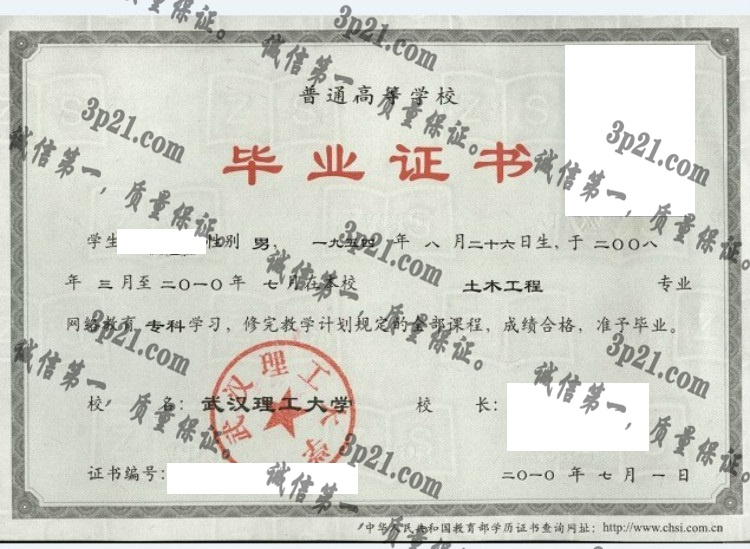 普通高等学校
毕业证书
学生 性别 男，一九五四 年 八 月二十六日生，于 二〇〇八
年 三 月至 二〇一〇 年 七 月在本校 土木工程 专业
网络教育 专科 学习，修完教学计划规定的全部课程，成绩合格，准予毕业。
校 名：武汉理工大学 校 长：
证书编号： 二〇一〇 年 七 月 一 日
中华人民共和国教育部学历证书查询网址：http://www.chsi.com.cn
武汉理工大学
3p21.com
诚信第一，质量保证。
3p21.com
诚信第一，质量保证。
3p21.com
诚信第一，质量保证。
3p21.com
诚信第一，质量保证。
3p21.com
诚信第一，质量保证。
3p21.com
诚信第一，质量保证。
3p21.com
诚信第一
质量保证。